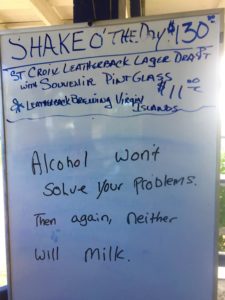 SHAKE O' THE DAY $13.00
ST CROIX LEATHERBACK LAGER DRAFT
WITH SOUVENIR PINT GLASS
$11.00
* LEATHERBACK BREWING VIRGIN
ISLANDS
Alcohol won't
solve your problems.
Then again, neither
will milk.